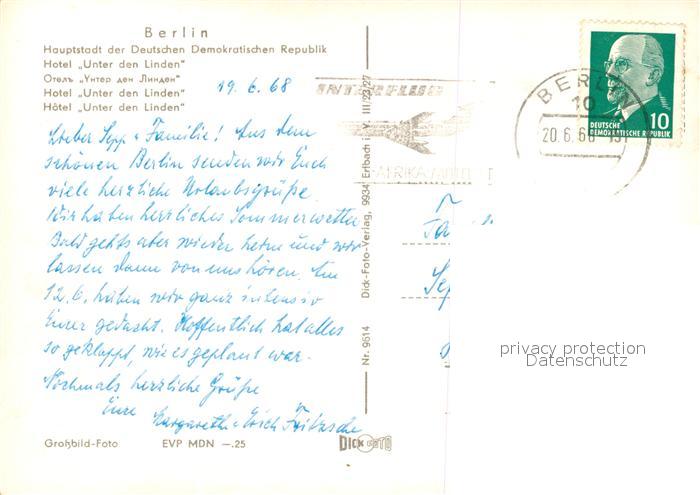 Berlin
Hauptstadt der Deutschen Demokratischen Republik
Hotel „Unter den Linden"
Отель „Унтер ден Линден"
Hotel „Unter den Linden"
Hôtel „Unter den Linden"
19.6.68
Lieber Sepp + Familie! Aus dem
schönen Berlin senden wir Euch
viele herzliche Urlaubsgrüße.
Wir haben herrliches Sommerwetter
Bald gehts aber wieder heim und wir
lassen dann von uns hören. Am
12.6. haben wir ganz intensiv
Eurer gedacht. Hoffentlich hat alles
so geklappt, wie es geplant war.
Nochmals herzliche Grüße
Eure Margarethe + Erich Fritzsche
Großbild-Foto EVP MDN —.25
Nr. 9614 Dick-Foto-Verlag, 9934 Erlbach i. V. III/23/27
DICK FOTO
INTERFLUG
AFRIKA
BERLIN
10
20.6.68
DEUTSCHE
DEMOKRATISCHE REPUBLIK
10
Fa
privacy protection
Datenschutz